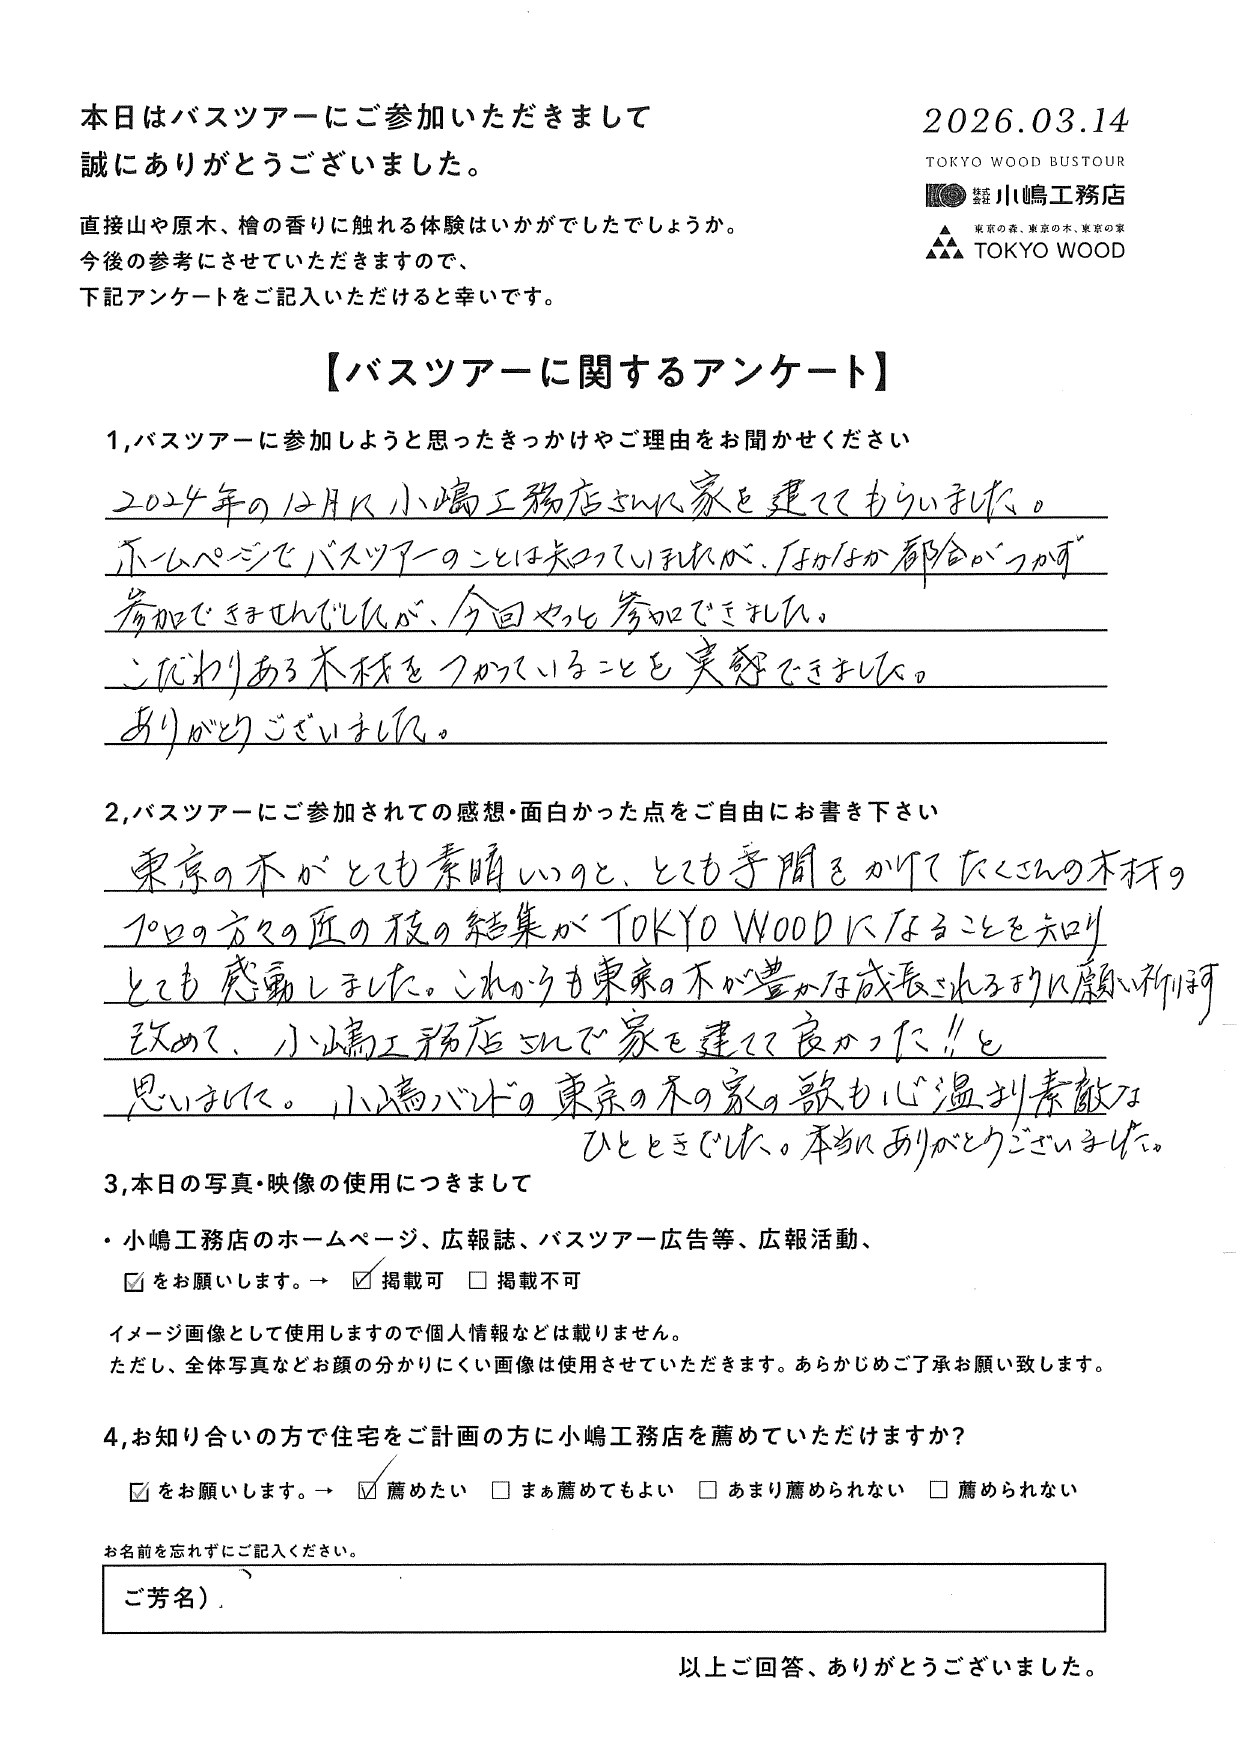 本日はバスツアーにご参加いただきまして
誠にありがとうございました。
2026.03.14
TOKYO WOOD BUSTOUR
株式会社 小嶋工務店
東京の森、東京の木、東京の家
TOKYO WOOD
直接山や原木、檜の香りに触れる体験はいかがでしたでしょうか。
今後の参考にさせていただきますので、
下記アンケートをご記入いただけると幸いです。
【バスツアーに関するアンケート】
1,バスツアーに参加しようと思ったきっかけやご理由をお聞かせください
2024年の12月に小嶋工務店さんに家を建ててもらいました。
ホームページでバスツアーのことは知っていましたが、なかなか都合がつかず
参加できませんでしたが、今回やっと参加できました。
こだわりある木材をつかっていることを実感できました。
ありがとうございました。
2,バスツアーにご参加されての感想・面白かった点をご自由にお書き下さい
東京の木がとても素晴しいのと、とても手間をかけてたくさんの木材の
プロの方々の匠の技の結集がTOKYO WOODになることを知り
とても感動しました。これからも東京の木が豊かな成長されるように願い祈ります
改めて、小嶋工務店さんで家を建てて良かった!!と
思いました。小嶋バンドの東京の木の家の歌も心温まり素敵な
ひとときでした。本当にありがとうございました。
3,本日の写真・映像の使用につきまして
・小嶋工務店のホームページ、広報誌、バスツアー広告等、広報活動、
☑をお願いします。→ ☑掲載可 □掲載不可
イメージ画像として使用しますので個人情報などは載りません。
ただし、全体写真などお顔の分かりにくい画像は使用させていただきます。あらかじめご了承お願い致します。
4,お知り合いの方で住宅をご計画の方に小嶋工務店を薦めていただけますか?
☑をお願いします。→ ☑薦めたい □まぁ薦めてもよい □あまり薦められない □薦められない
お名前を忘れずにご記入ください。
ご芳名)
以上ご回答、ありがとうございました。